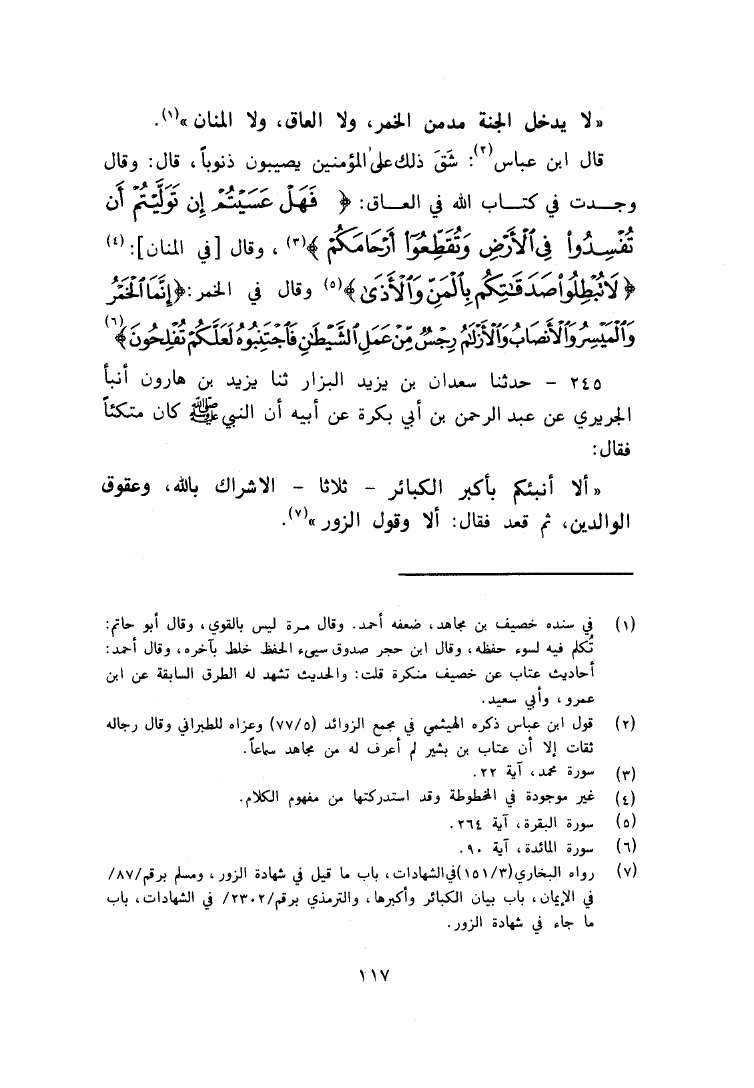 « لا يدخل الجنة مدمن الخمر، ولا العاق، ولا المنان »(١).
قال ابن عباس(٢): شَقَ ذلك على المؤمنين يصيبون ذنوباً، قال: وقال
وجـدت في كتـاب الله في العـاق: ﴿ فَهَلْ عَسَيْتُمْ إِن تَوَلَّيْتُمْ أَن
تُفْسِدُوا۟ فِى ٱلْأَرْضِ وَتُقَطِّعُوٓا۟ أَرْحَامَكُمْ ﴾(٣)، وقال [في المنان]: (٤)
﴿ لَا تُبْطِلُوا۟ صَدَقَٰتِكُم بِٱلْمَنِّ وَٱلْأَذَىٰ ﴾(٥) وقال في الخمر: ﴿ إِنَّمَا ٱلْخَمْرُ
وَٱلْمَيْسِرُ وَٱلْأَنصَابُ وَٱلْأَزْلَٰمُ رِجْسٌ مِّنْ عَمَلِ ٱلشَّيْطَٰنِ فَٱجْتَنِبُوهُ لَعَلَّكُمْ تُفْلِحُونَ ﴾(٦)
٢٤٥ - حدثنا سعدان بن يزيد البزار ثنا يزيد بن هارون أنبأ
الجريري عن عبد الرحمن بن أبي بكرة عن أبيه أن النبي ﷺ كان متكئاً
فقال:
« ألا أنبئكم بأكبر الكبائر - ثلاثا - الاشراك بالله، وعقوق
الوالدين، ثم قعد فقال: ألا وقول الزور »(٧).
(١) في سنده خصيف بن مجاهد، ضعفه أحمد. وقال مرة ليس بالقوي، وقال أبو حاتم:
تُكلم فيه لسوء حفظه، وقال ابن حجر صدوق سيىء الحفظ خلط بآخره، وقال أحمد:
أحاديث عتاب عن خصيف منكرة قلت: والحديث تشهد له الطرق السابقة عن ابن
عمرو، وأبي سعيد.
(٢) قول ابن عباس ذكره الهيثمي في مجمع الزوائد (٧٧/٥) وعزاه للطبراني وقال رجاله
ثقات إلا أن عتاب بن بشير لم أعرف له من مجاهد سماعاً.
(٣) سورة محمد، آية ٢٢.
(٤) غير موجودة في المخطوطة وقد استدركتها من مفهوم الكلام.
(٥) سورة البقرة، آية ٢٦٤.
(٦) سورة المائدة، آية ٩٠.
(٧) رواه البخاري (١٥١/٣) في الشهادات، باب ما قيل في شهادة الزور، ومسلم برقم/٨٧/
في الإيمان، باب بيان الكبائر وأكبرها، والترمذي برقم/٢٣٠٢/ في الشهادات، باب
ما جاء في شهادة الزور.
١١٧